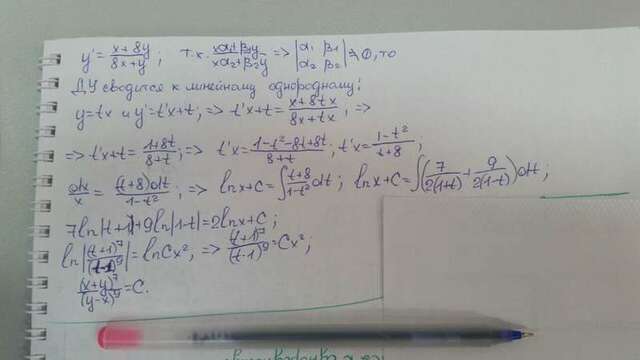 y' = (x+8y)/(8x+y); т.к. (xα₁+β₁y)/(xα₂+β₂y) => |α₁ β₁; α₂ β₂| ≠ 0, то
ДУ сводится к линейному однородному:
y=tx и y'=t'x+t; => t'x+t = (x+8tx)/(8x+tx); =>
=> t'x+t = (1+8t)/(8+t); => t'x = (1-t²-8t+8t)/(8+t); t'x = (1-t²)/(t+8);
dx/x = (t+8)dt/(1-t²); => ln x+C = ∫(t+8)/(1-t²)dt; ln x+C = ∫(7/(2(1+t)) + 9/(2(1-t)))dt;
7ln|t+1|+9ln|1-t|=2lnx+C;
ln|(t+1)⁷/(t-1)⁹| = lnCx²; => (t+1)⁷/(t-1)⁹ = Cx²;
(x+y)⁷/(y-x)⁹ = C.